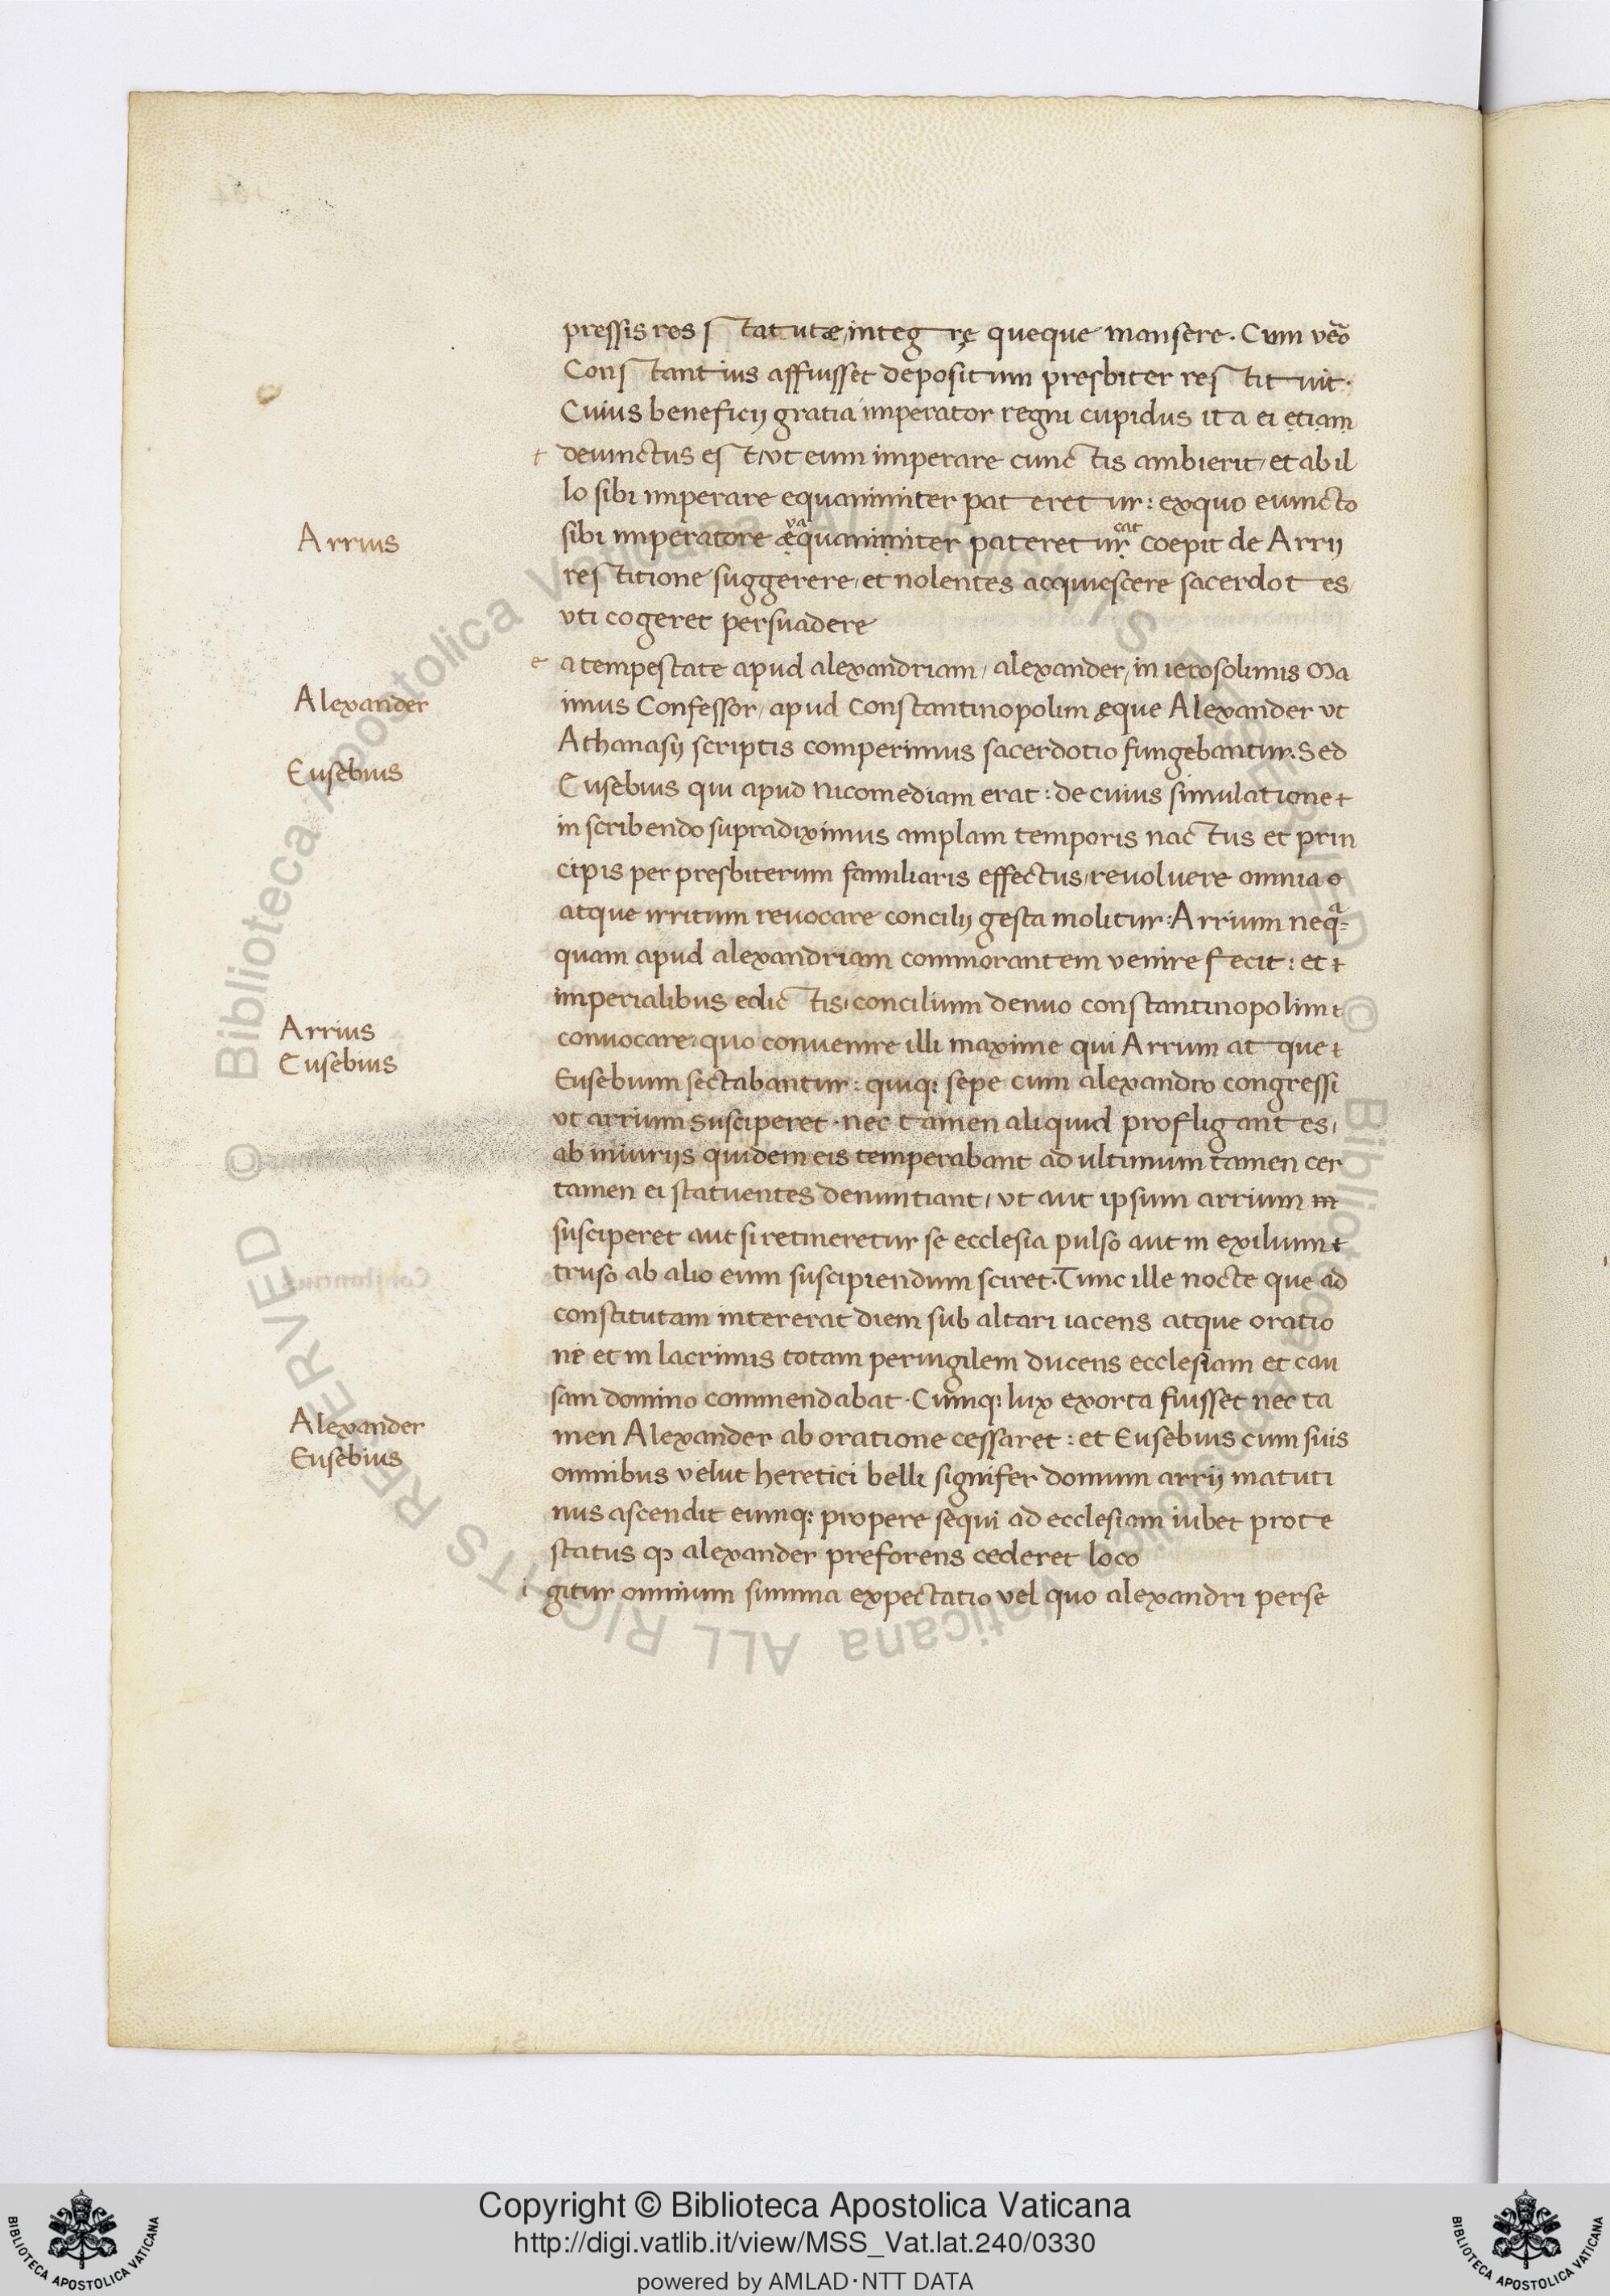 pressis res statutæ, integrę queque mansere. Cum vero
Constantius affuisset depositum presbiter restituit.
Cuius beneficij gratia imperator regni cupidus ita ei etiam
t deuinctus est, vt eum imperare cunctis ambierit, et ab il
lo sibi imperare equanimiter pateretur: ex quo euincto
sibi imperatore æquanimiter pateretur coepit de Arrij
va
cat
Arrius
restitione suggerere, et nolentes acquiescere sacerdotes
vti cogeret persuadere
e a tempestate apud alexandriam, alexander, in ierosolimis Ma
Alexander
imus Confessor, apud constantinopolim ęque Alexander vt
Athanasij scriptis comperimus sacerdotio fungebantur. Sed
Eusebius
Eusebius qui apud nicomediam erat: de cuius simulatione
in scribendo supradiximus amplam temporis nactus et prin
cipis per presbiterum familiaris effectus, reuoluere omnia
atque irritum reuocare concilij gesta molitur: Arrium neq
quam apud alexandriam commorantem venire fecit: et
imperialibus edictis, concilium denuo constantinopolim
Arrius
conuocare, quo conuenire illi maxime qui Arrum atque
Eusebius
Eusebium sectabantur: quiq: sepe cum alexandro congressi
vt arrium susciperet. nec tamen aliquid profligantes,
ab iniurijs quidem eis temperabant ad ultimum tamen cer
tamen ei statuentes denuntiant, vt aut ipsum arrium in
susciperet aut si retineretur se ecclesia pulso aut in exilium
truso ab alio eum suscipiendum sciret. Tunc ille nocte que ad
constitutam intererat diem sub altari iacens atque oratio
ne et in lacrimis totam peruigilem ducens ecclesiam et cau
sam domino commendabat. Cumq: lux exorta fuisset nec ta
Alexander
men Alexander ab oratione cessaret: et Eusebius cum suis
Eusebius
omnibus velut heretici belli signifer domum arrij matuti
nus ascendit eumq: propere sequi ad ecclesiam iubet prote
status qƺ alexander preforens cederet loco
i gitur omnium summa expectatio vel quo alexandri perse
© Biblioteca Apostolica Vaticana ALL RIGHTS RESERVED © Biblioteca Apostolica Vaticana ALL RIGHTS RESERVED
Copyright © Biblioteca Apostolica Vaticana
http://digi.vatlib.it/view/MSS_Vat.lat.240/0330
powered by AMLAD·NTT DATA
BIBLIOTECA APOSTOLICA VATICANA
BIBLIOTECA APOSTOLICA VATICANA